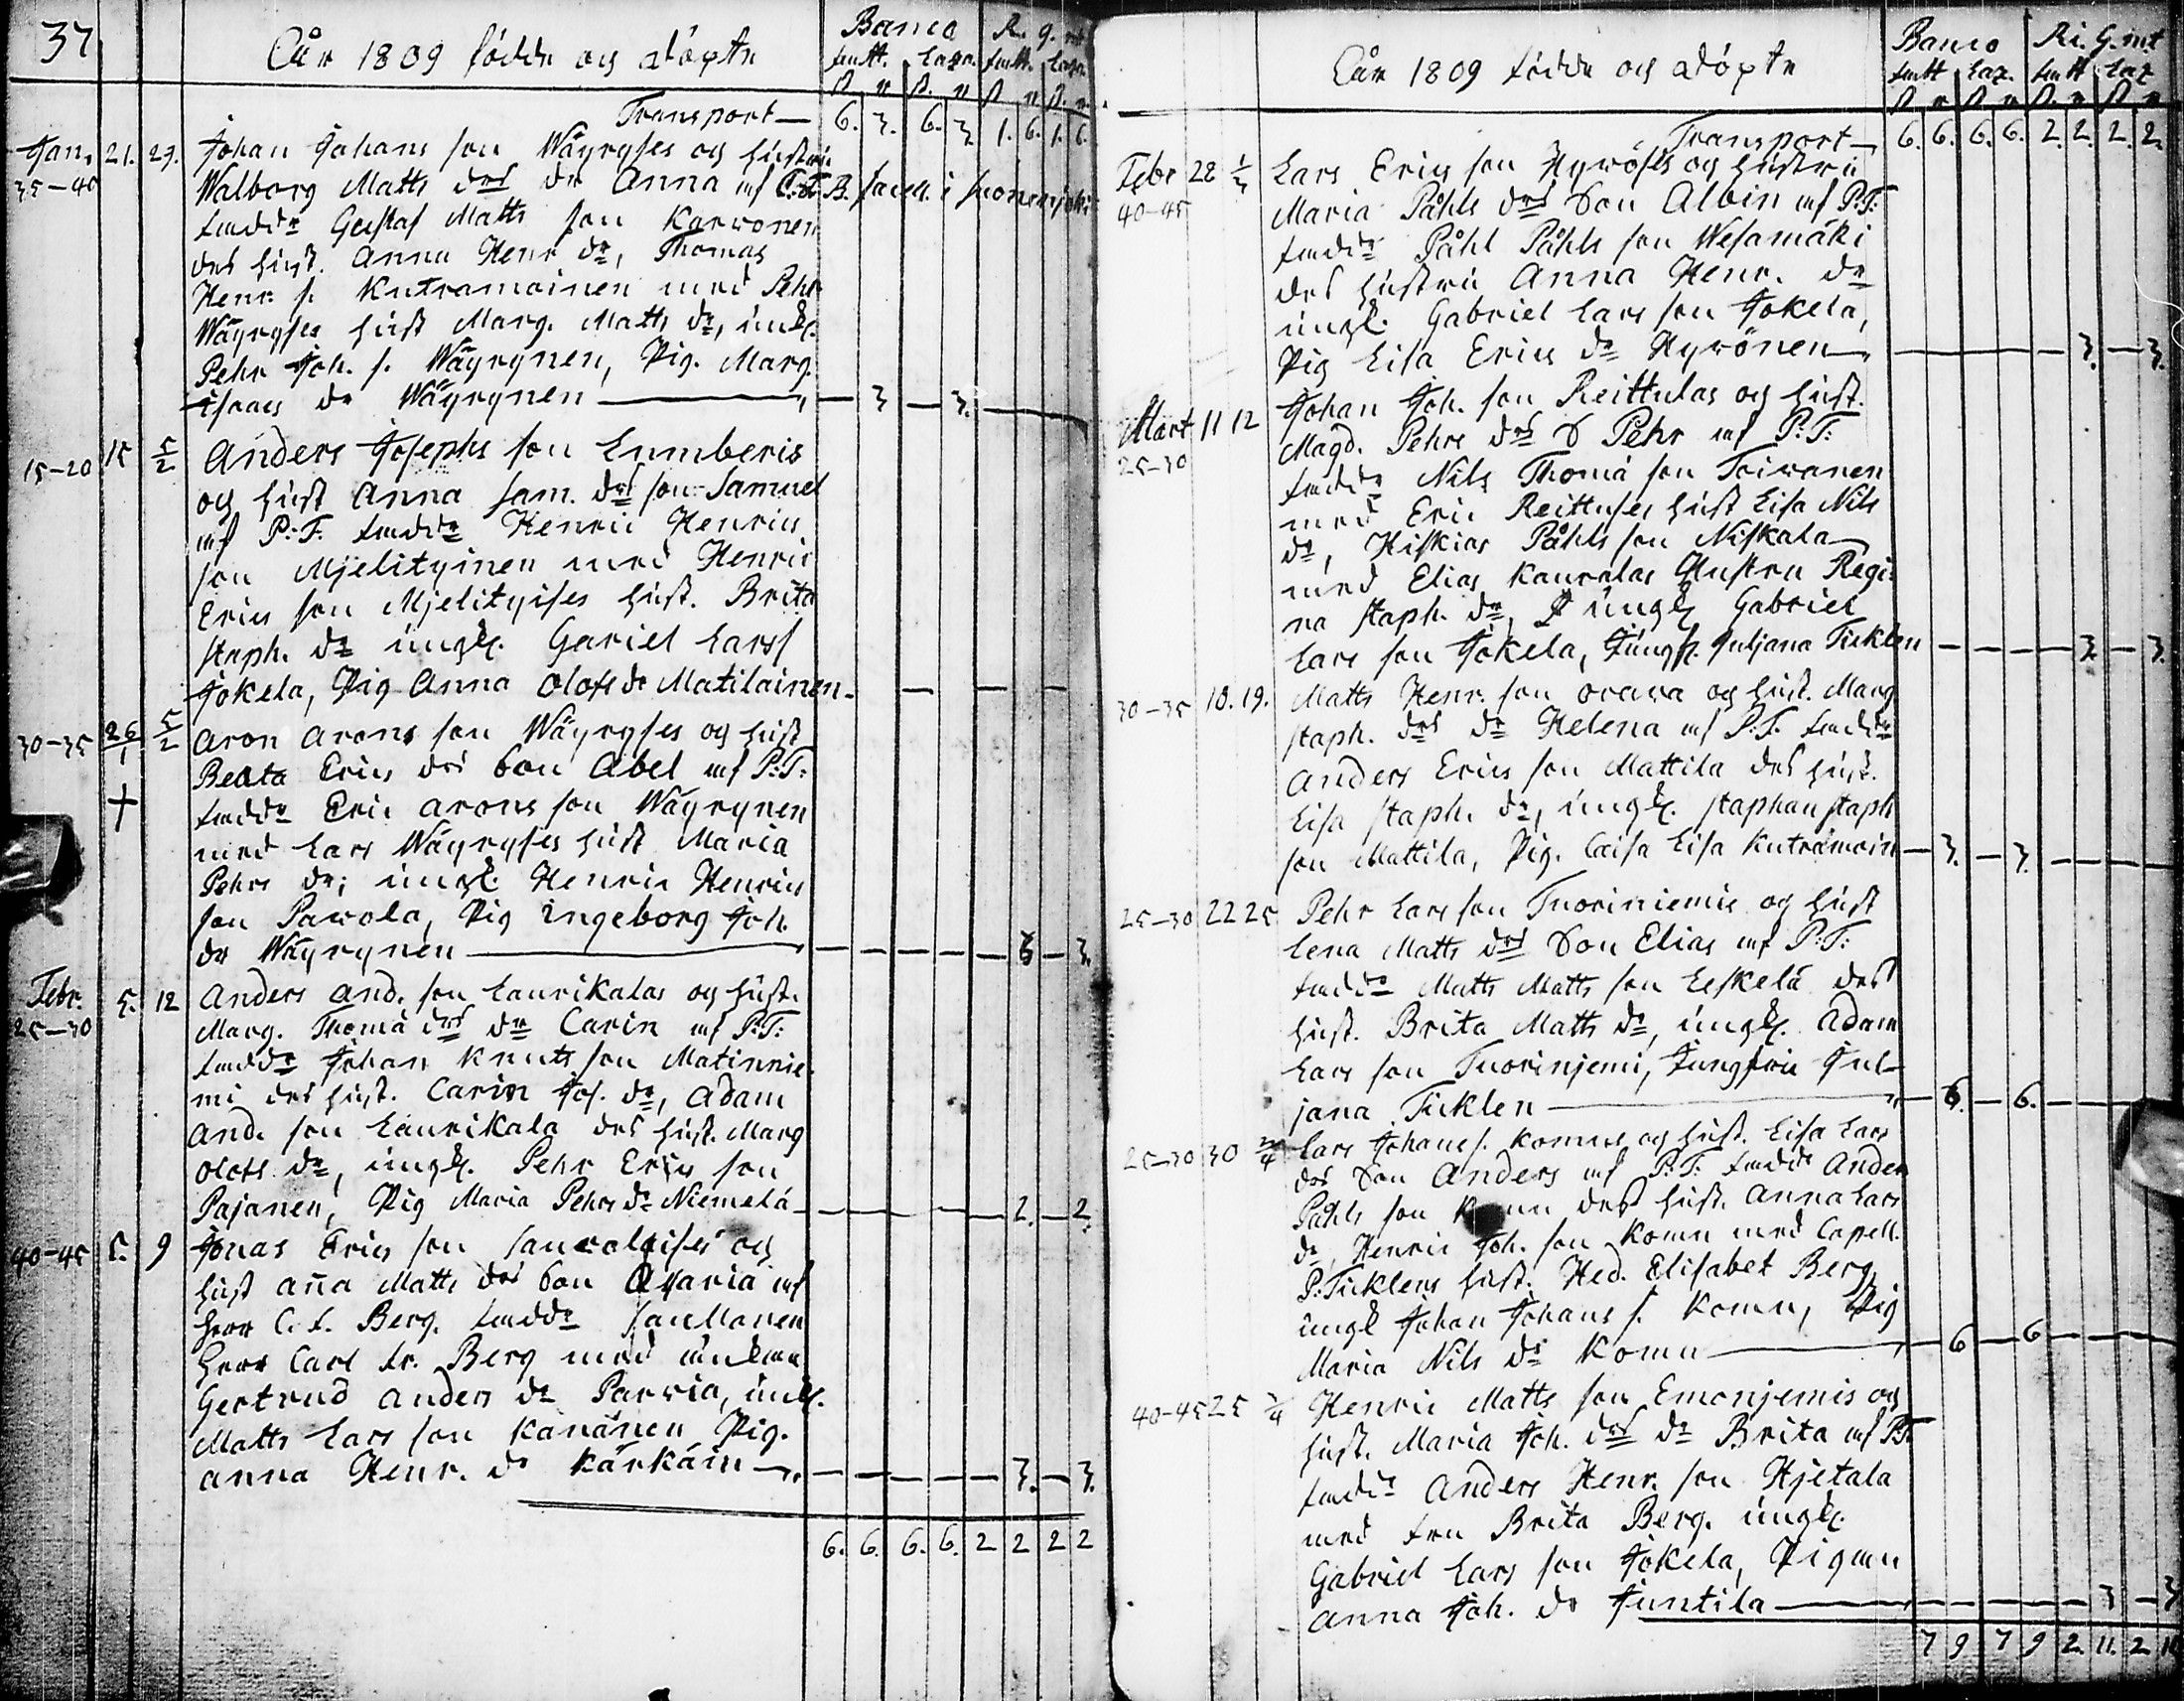 37
Åår 1809 födde och döpte
Banco R. g.
Transport — 6. 3. 6. 3 1. 6. 1. 6.
Jan. 21. 29. Johan Johans son Wäyryses och hustru
35-40 Walborg Matts dos dr Anna af C.F.B. sacell. i Suomenjoki
fadde Gustaf Matts son Karvonen
des hust. Anna Henr dr, Thomas
Henr. s. Kutramoinen med Pehr
Wäyryses hust Marg. Matts dr, ungk.
Pehr Joh. s. Wäyrynen, Pig. Marg.
Isaacs dr Wäyrynen — 3 — 3.
15-20 15 5/2 Anders Josephs son Lumberis
och hust Anna Sam. dos son Samuel
af P.T. fadde Henric Henrics
son Mjelityinen med Henric
Erics son Mjelityises hust. Brita
Staph. dr ungk. Gariel Larss
Jokela, Pig Anna Olofs dr Matilainen
30-35 26/1 5/2 Aron Arons son Wäyryses och hust
Beata Erics dos son Abel af P:T:
† fadde Eric Arons son Wäyrynen
med Lars Wäyryses hust Maria
Pehrs dr; ungk. Henric Henrics
son Pawola, Pig Ingeborg Joh.
dr Wäyrynen — 3 — 3.
Febr. 5. 12 Anders And. son Laurikalas och hust.
25-30 Marg. Thomä dos dr Carin af P:T:
fadde Johan Knuts son Matinnie
mi des hust. Carin Jos. dr, Adam
And. son Laurikala des hust. Marg
Olofs dr, ungk. Pehr Erics son
Pajanen, Pig Maria Pehrs dr Niemelä — 2. — 2.
40-45 5. 9 Jonas Erics son och
hust Aña Matts dos son Maria af
Herr C. f. Berg. fadde
Herr Carl fr. Berg med
Gertrud Anders dr Parvia, ungk.
Matts Lars son Känänen Pig.
Anna Henr. dr Kärkäin — 3. — 3.
6. 6. 6. 6. 2 2 2 2
Åår 1809 födde och döpte
Banco Ri. G. mt
Transport — 6. 6. 6. 6. 2. 2. 2. 2.
Febr 28 1/3 Lars Erics son Hyvöses och hustru
40-45 Maria Påhls dos son Albin af P.T:
fadde Påhl Påhls son Wesamäki
des hustru Anna Henr. dr
ungk. Gabriel Lars son Jokela,
Pig Lisa Erics dr Hyvönen — 3. — 3.
Mart 11 12 Johan Joh. son Reittulas och hust.
25-30 Magd. Pehrs dos S Pehr af P:T:
fadde Nils Thomä son Toivanen
med Eric Reittuses hust Lisa Nils
dr, Hiskias Påhls son Niskala
med Elias Kauralas Hustru Regi-
na Staph. dr, ungk Gabriel
Lars son Jokela, Jungfr. Juljana Ticklen — 3. — 3.
30-35 18. 19. Matts Henr. son Orava och hust. Marg
Staph. dos dr Helena af P.T. fadde
Anders Erics son Mattila des hust.
Lisa Staph. dr, ungk. Staphan Staph
son Mattila, Pig. Caisa Lisa Kutramoin — 3. — 3.
25-30 22 25 Pehr Lars son Tuoriniemis och hust
Lena Matts dos son Elias af P:T:
fadde Matts Matts son Leskelä des
hust. Brita Matts dr, ungk. Adam
Lars son Tuorinjemi, Jungfru Jul-
jana Ticklen — 6. — 6.
25-30 30 2/4 Lars Johans s. Komus och hust. Lisa Lars
dos son Anders af P:T: fadde Anders
Påhls son des hust. Anna Lars
dr, Henric Joh. son Komu med Capell.
P. Ticklens hust. Hed. Elisabet Berg
ungk Johan Johans s. Komu, Pig
Maria Nils dr Komu — 6 — 6
40-45 25 3/4 Henric Matts son Emonjemis och
hust. Maria Joh. dos dr Brita af P.T.
fadde Anders Henr. son Hjetala
med fru Brita Berg. ungk.
Gabriel Lars son Jokela, Pigan
Anna Joh. dr Juntila — 3 — 3
7 9 7 9 2. 11. 2 11